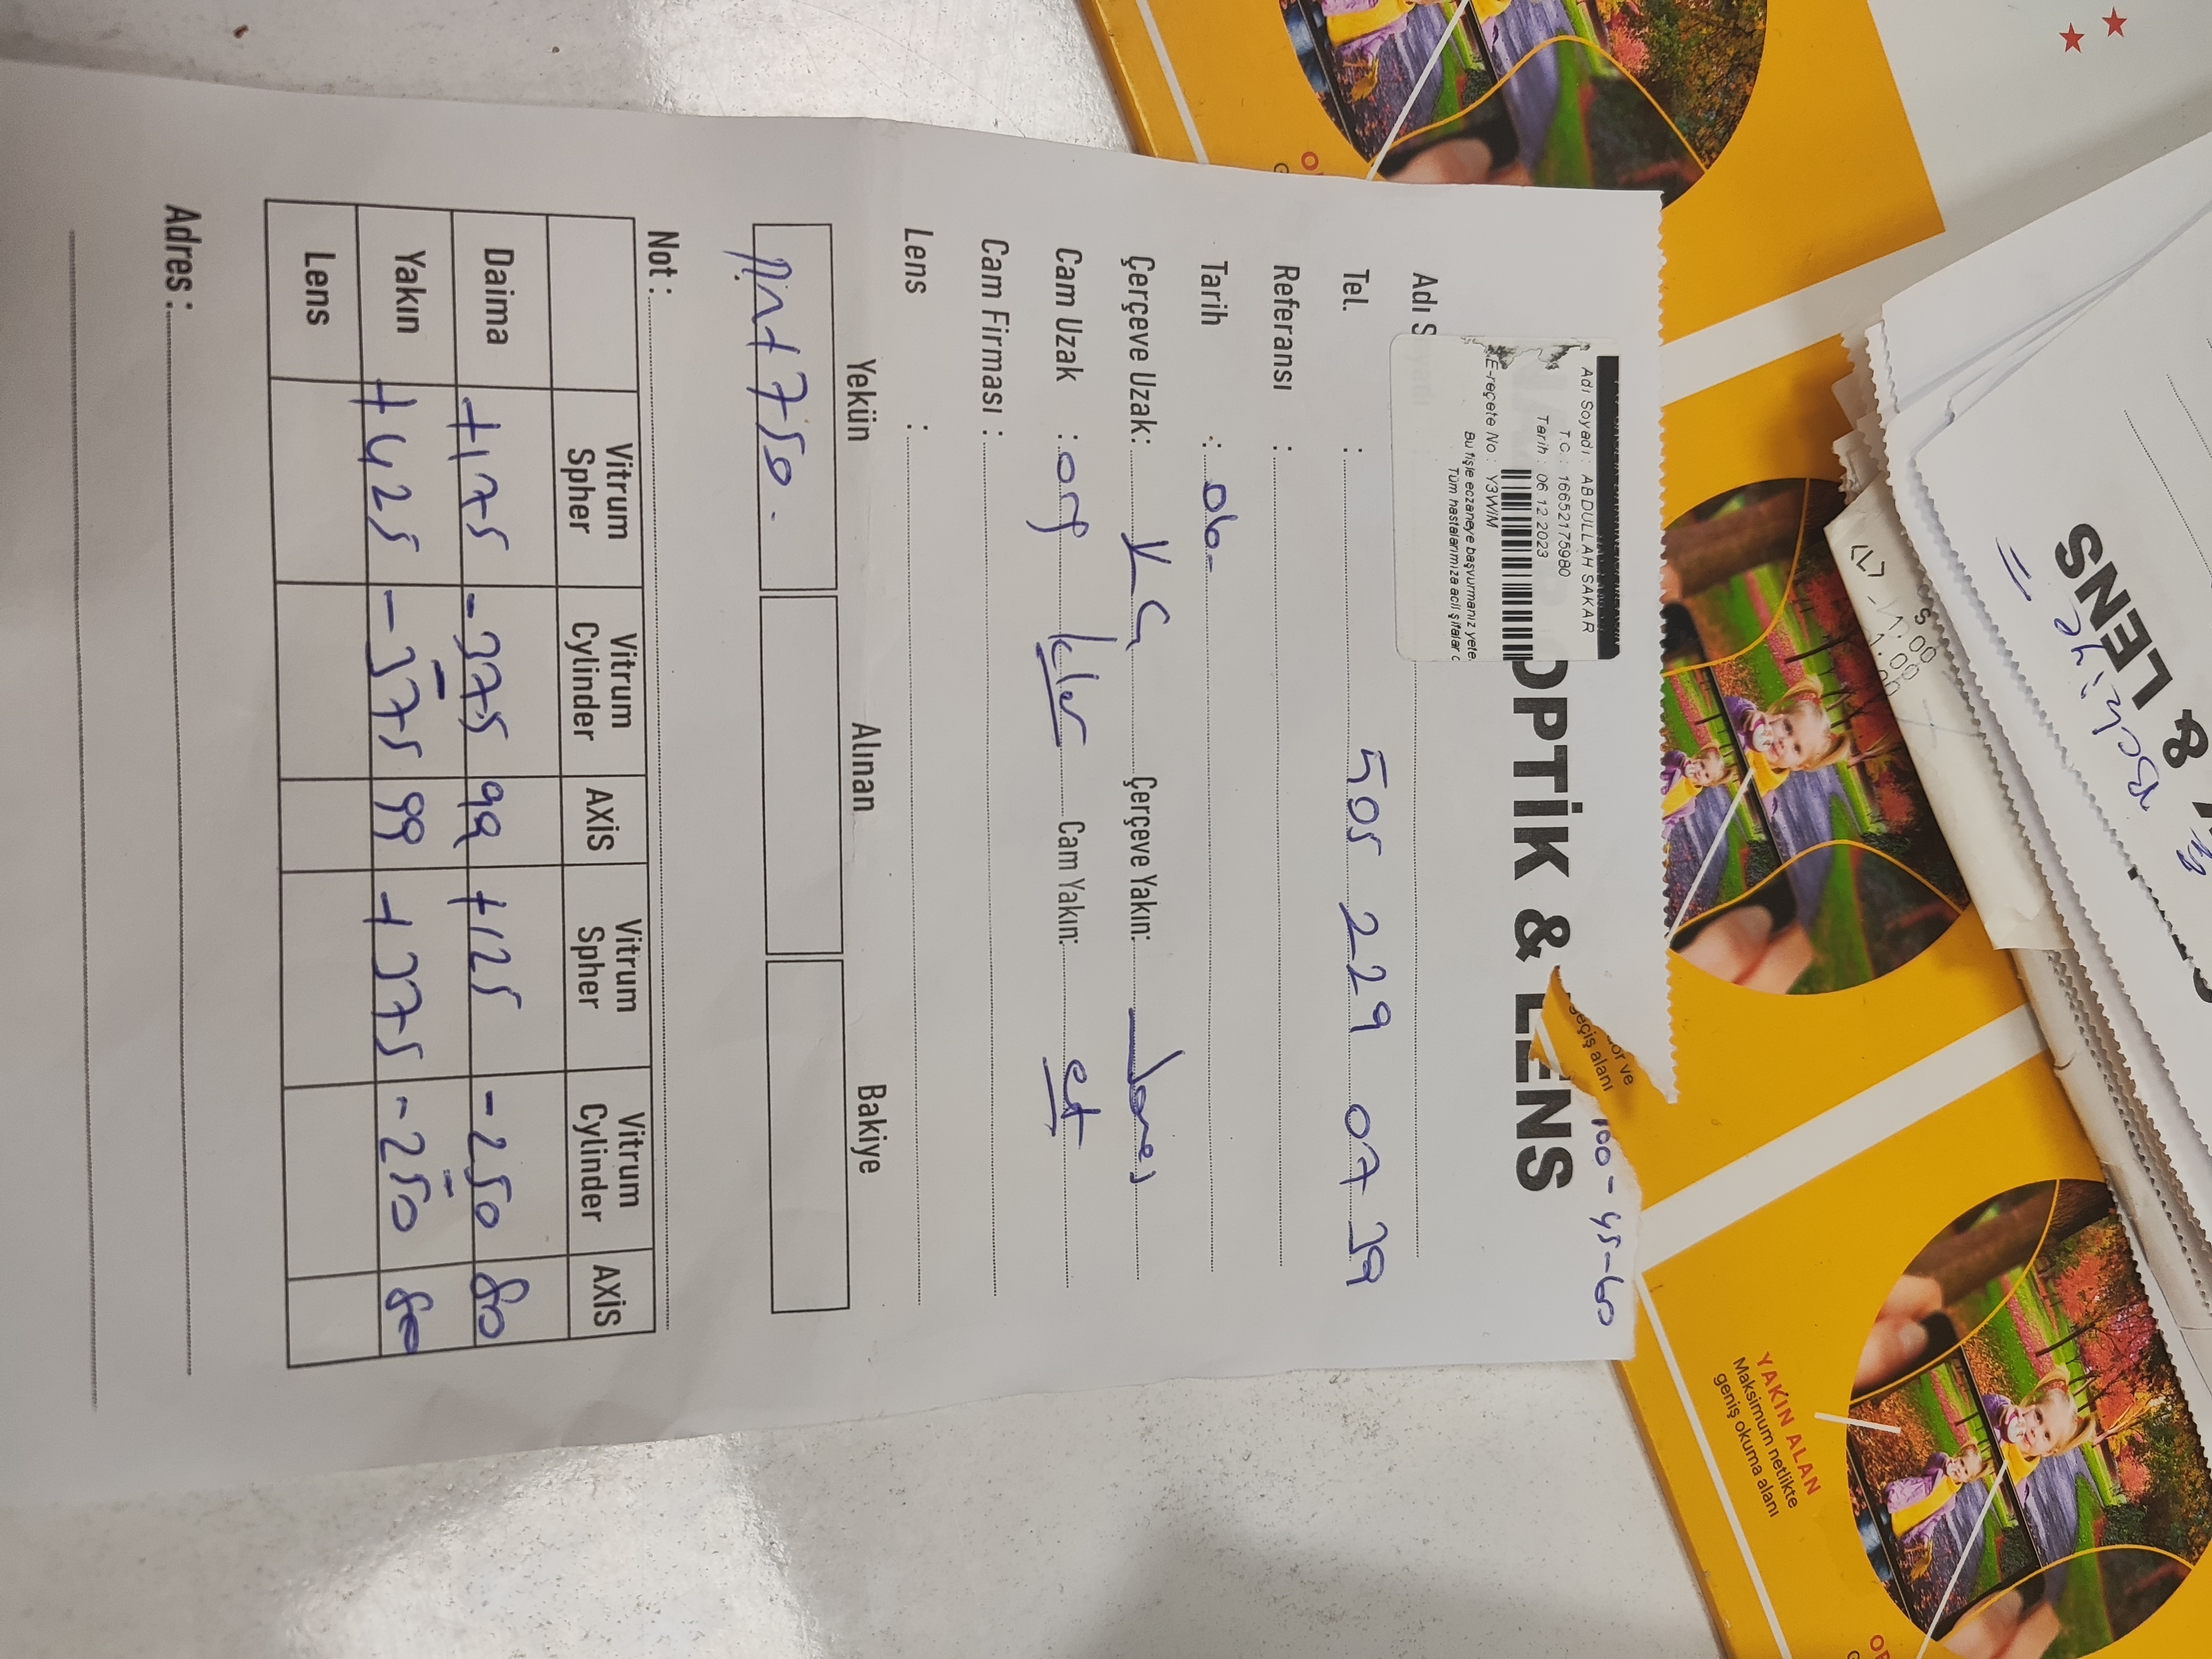 100-45-60
OPTİK & LENS
Adı Soyadı : ABDULLAH SAKAR
T.C. : 16652175980
Tarih : 06.12.2023
E-reçete No : Y3WIM
Bu fişle eczaneye başvurmanız yete
Tüm hastalarımıza acil şifalar
Adı S
Tel. : 505 229 07 39
Referansı :
Tarih : 06-
Çerçeve Uzak: Çerçeve Yakın:
Cam Uzak : Cam Yakın:
Cam Firması :
Lens :
Yekün Alınan Bakiye
750.
Not :
Vitrum Spher Vitrum Cylinder AXIS Vitrum Spher Vitrum Cylinder AXIS
Daima +175 -375 99 +125 -250 80
Yakın +425 -375 99 +375 -250 80
Lens
Adres :
or ve
geçiş alanı
YAKIN ALAN
Maksimum netlikte
geniş okuma alanı
& LENS
Behiye
<L> -1.00
1.00